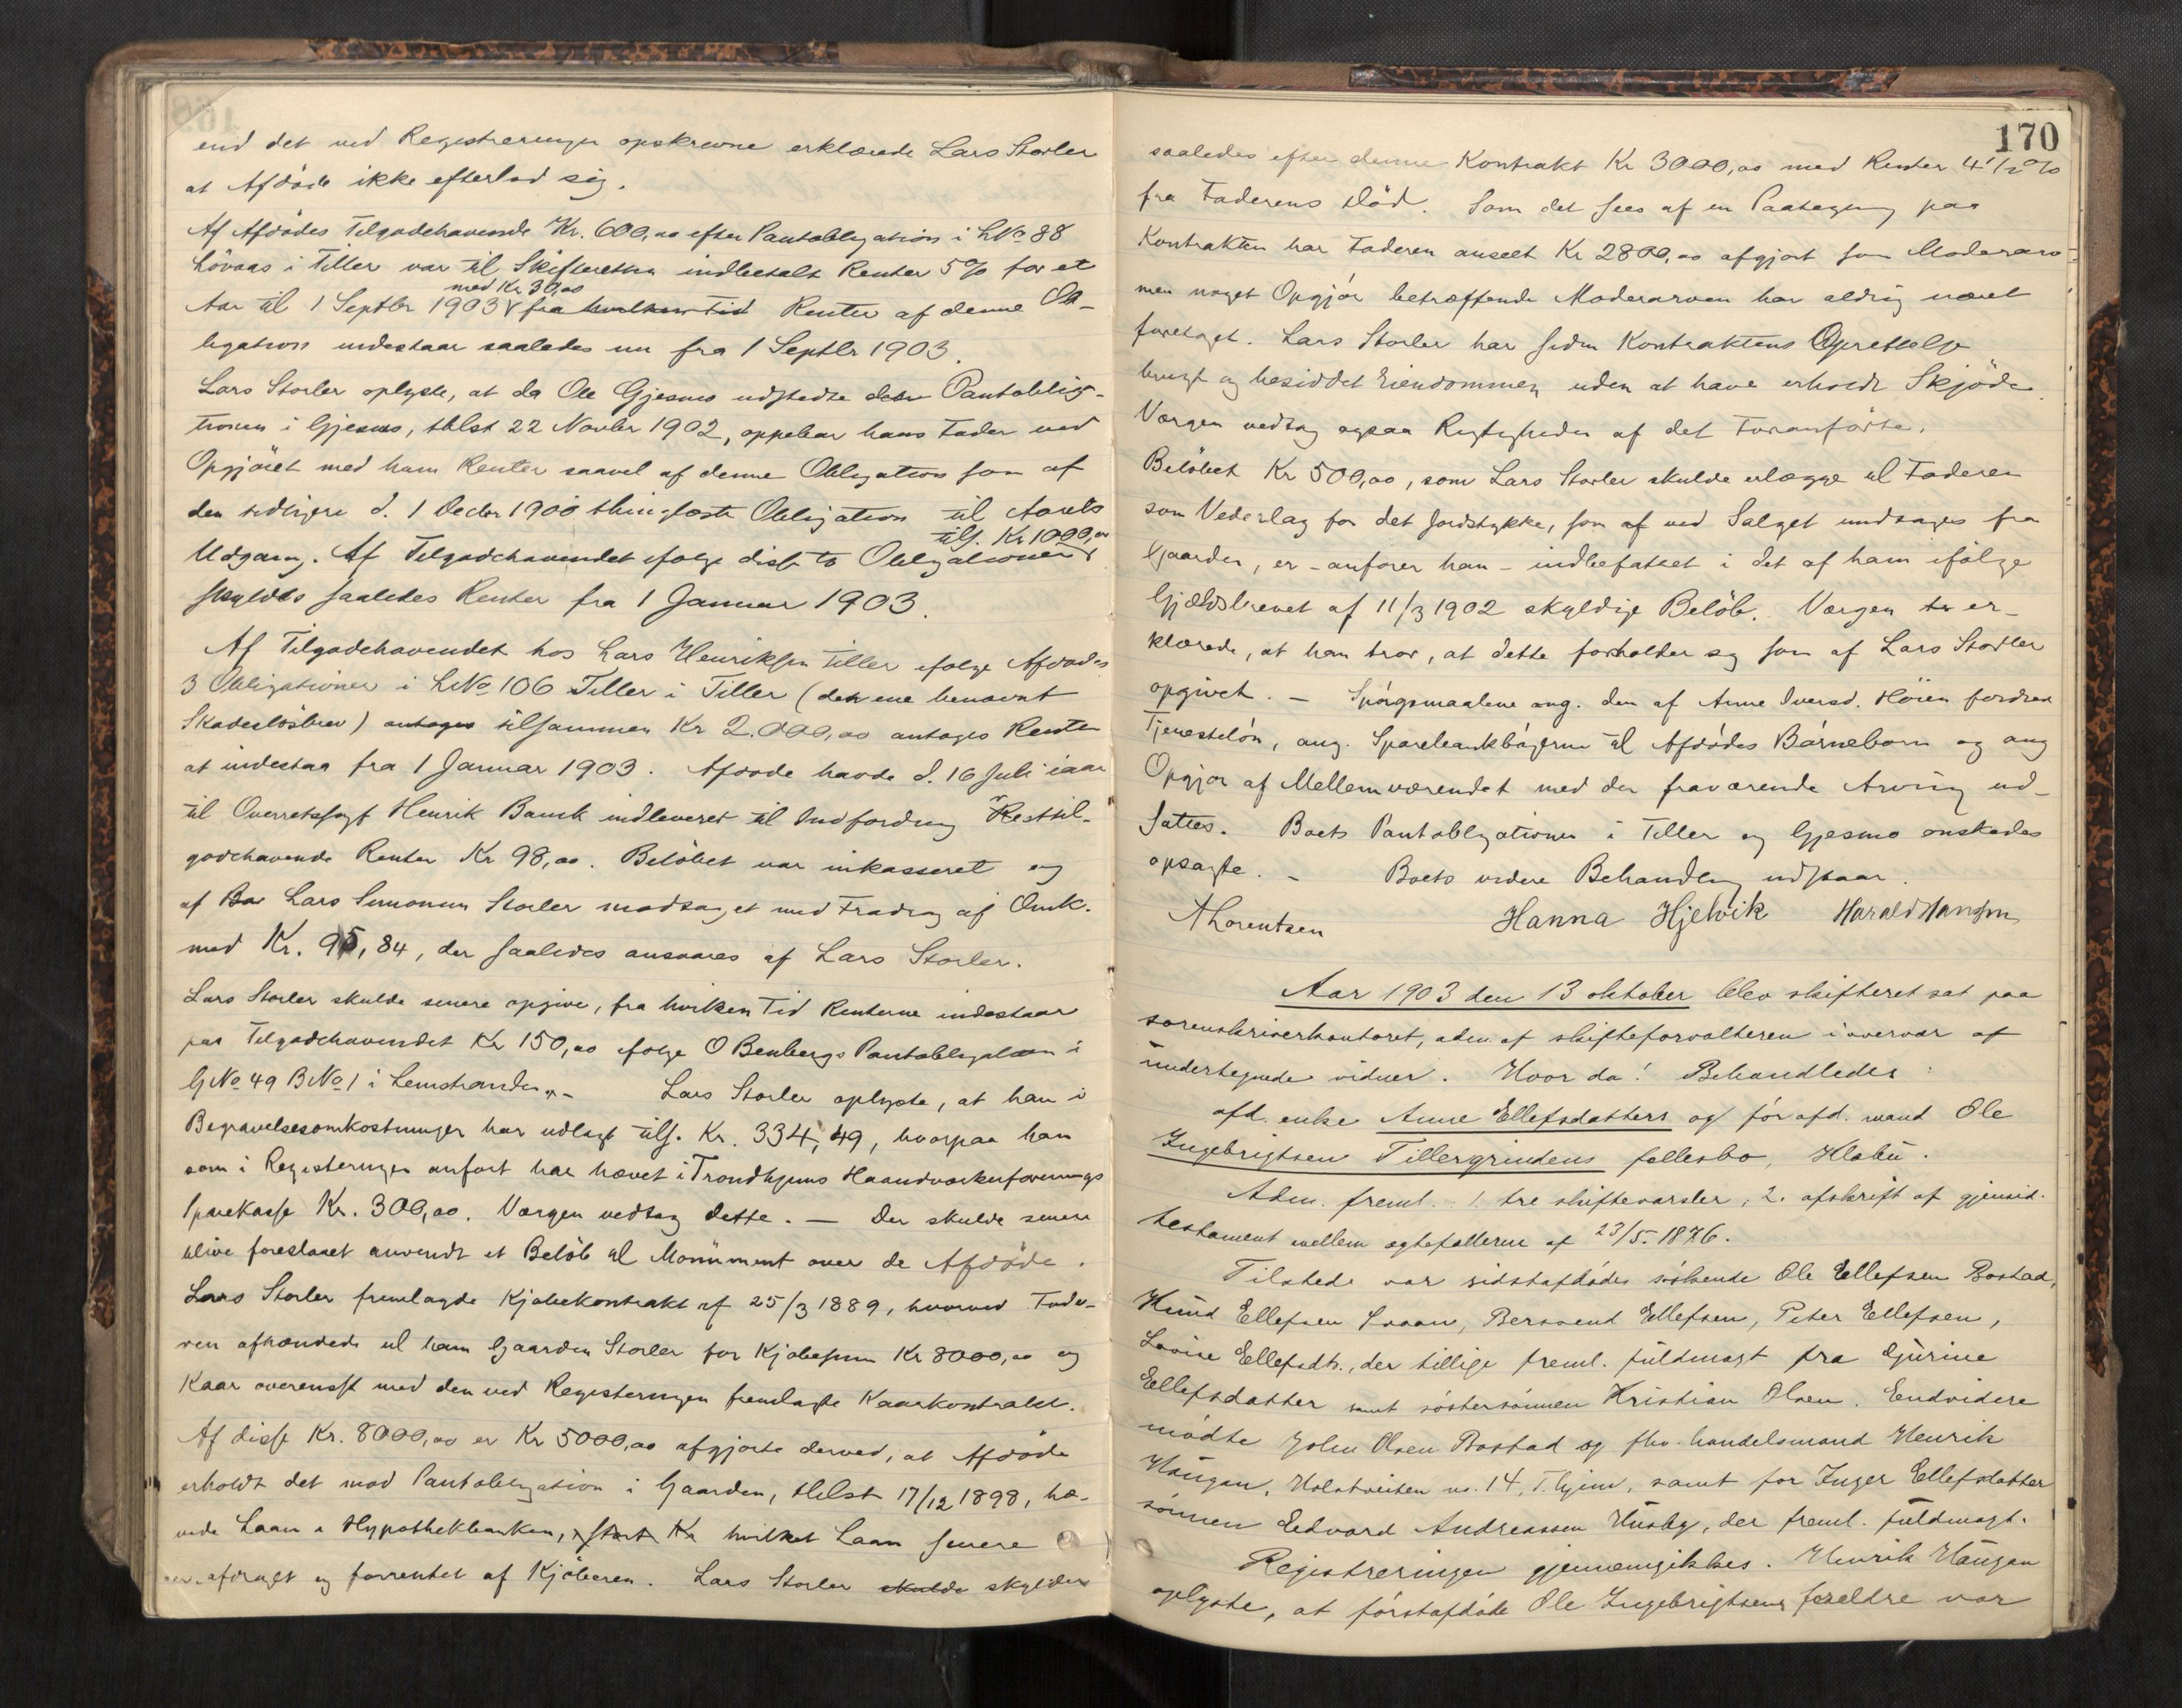 end det ved Registreringen opskrevne erklærede Lars Storler
at Afdöde ikke efterlod sig.
Af Afdödes Tilgodehavende Kr. 600,00 efter Pantobligation i LNo 88
Lövaas i Tiller var til Skifteretten indbetalt Renter 5% for et
med Kr 30,00
Aar til 1 Septbr 1903 fra hvilken Tid Renter af denne Ob-
ligation indestaar saaledes nu fra 1 Septbr 1903.
Lars Storler oplyste, at da Ole Gjesmo udstedte den Pantobliga-
tionen i Gjesmo, thlst 22 Novbr 1902, oppebar hans Fader ved
Opgjöret med ham Renter saavel af denne Obligation som af
den tidligere d. 1 Decbr 1900 thinglæste Obligation til Aarets
tils. Kr 1000,00
Udgang. Af Tilgodehavendet ifölge disse to Obligationer
skyldes saaledes Renter fra 1 Januar 1903.
Af Tilgodehavendet hos Lars Henriksen Tiller ifölge Afdödes
3 Obligationer i LNo 106 Tiller i Tiller (den ene benævnt
Skadeslösbrev) antages tilsammen Kr 2.000,00 antages Renter
at indestaa fra 1 Januar 1903. Afdöde havde d. 16 Juli iaar
til Overretssagf Henrik Bauck indleveret til Indfordring Resttil-
godehavende Renter Kr 98,00. Belöbet var inkasseret og
af Ba Lars Simonsen Storler modtaget med Fradrag af Omk.
med Kr. 95,84, der saaledes ansvares af Lars Storler.
Lars Storler skulde senere opgive, fra hvilken Tid Renterne indestaar
paa Tilgodehavendet Kr 150,00 ifölge O Benbergs Pantobligation i
GNo 49 BNo 1 i Leinstranden. - Lars Storler oplyste, at han i
Begravelsesomkostninger har udlagt tils. Kr. 334,49, hvorpaa han
som i Registeringen anfört har hævet i Trondhjems Haandværkerforenings
Sparekasse Kr. 300,00. Værgen vedtog dette. - Der skulde senere
blive foreslaaet anvendt et Belöb til Monument over de Afdöde.
Lars Storler fremlagde Kjöbekontrakt af 25/3 1889, hvorved Fade-
ren afhændede til ham Gaarden Storler for Kjöbesum Kr 8000,00 og
Kaar overensst med den ved Registeringen fremlagte Kaarkontrakt.
Af disse Kr. 8000,00 er Kr 5000,00 afgjorte derved, at Afdöde
erholdt det mod Pantobligation i Gaarden, thlst 17/12 1898, hæ-
vede Laan i Hypothekbanken, stort Kr hvilket Laan senere
er afdraget og forrentet af Kjöberen. Lars Storler skulde skylder
170
saaledes efter denne Kontrakt Kr 3000,00 med Renter 4 1/2 %
fra Faderens Död. Som det sees af en Paategning paa
Kontrakten har Faderen anseet Kr 2800,00 afgjort som Moderarv
men noget Opgjör betræffende Moderarven har aldrig været
foretaget. Lars Storler har siden Kontraktens Oprettelse
brugt og besiddet Eiendommen uden at have erholdt Skjöde.
Værgen vedtog ogsaa Rigtigheden af det Foranförte.
Belöbet Kr 500,00, som Lars Storler skulde erlægge til Faderen
som Vederlag for det Jordstykke, som af ved Salget undtages fra
Gaarden, er - anförer han - indbefattet i det af ham ifölge
Gjældsbrevet af 11/3 1902 skyldige Belöb. Værgen er-
klærede, at han tror, at dette forholder sig som af Lars Storler
opgivet. - Spörgsmaalene ang. den af Anne Iversd. Höien fordrede
Tjenestelön, ang. Sparebankbögerne til Afdödes Börneborn og ang
Opgjör af Mellemværendet med den fraværende Arving ud-
sattes. Boets Pantobligationer i Tiller og Gjesmo önskedes
opsagte. - Boets videre Behandling udstaar.
A Lorentzen Hanna Hjelvik Harald Hansen
Aar 1903 den 13 oktober blev skifteret sat paa
sorenskriverkontoret, adm. af skifteforvalteren i overvær af
undertegnede vidner. Hvor da: Behandledes:
afd. enke Anne Ellefsdatters og för afd. mand Ole
Ingebrigtsen Tillergrindens fællesbo, Klæbu.
Adm. freml. 1. tre skiftevarsler, 2. afskrift af gjensid.
testament mellem ægtefællerne af 23/5. 1876.
Tilstede var sidstafdödes söskende Ole Ellefsen Bostad,
Knud Ellefsen Svaan, Bersvend Ellefsen, Peter Ellefsen,
Lovise Ellefsdtr., der tillige freml. fuldmagt fra Gjurine
Ellefsdatter samt söstersönnen Kristian Olsen. Endvidere
mödte John Olsen Bostad og fhv. handelsmand Henrik
Haugan, Holstveiten no. 14, T.hjem, samt for Inger Ellefsdatter
sönnen Edvard Andreassen Husby, der freml. fuldmagt.
Registreringen gjennemgikkes. Henrik Haugan
oplyste, at förstafdöde Ole Ingebrigtsens forældre var